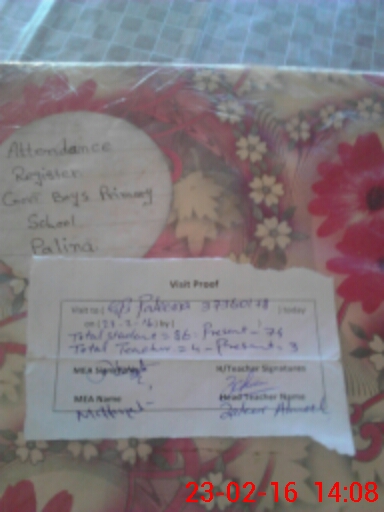 Attendance
Register
Govt Boys Primary
School
Palina
Visit Proof
Visit to ( 37360178 ) today
on (23-2-16) by (
Total student = 86 - Present - 76
Total Teacher = 4 - Present = 3
MEA Signatures H/Teacher Signatures
MEA Name Head Teacher Name
23-02-16 14:08